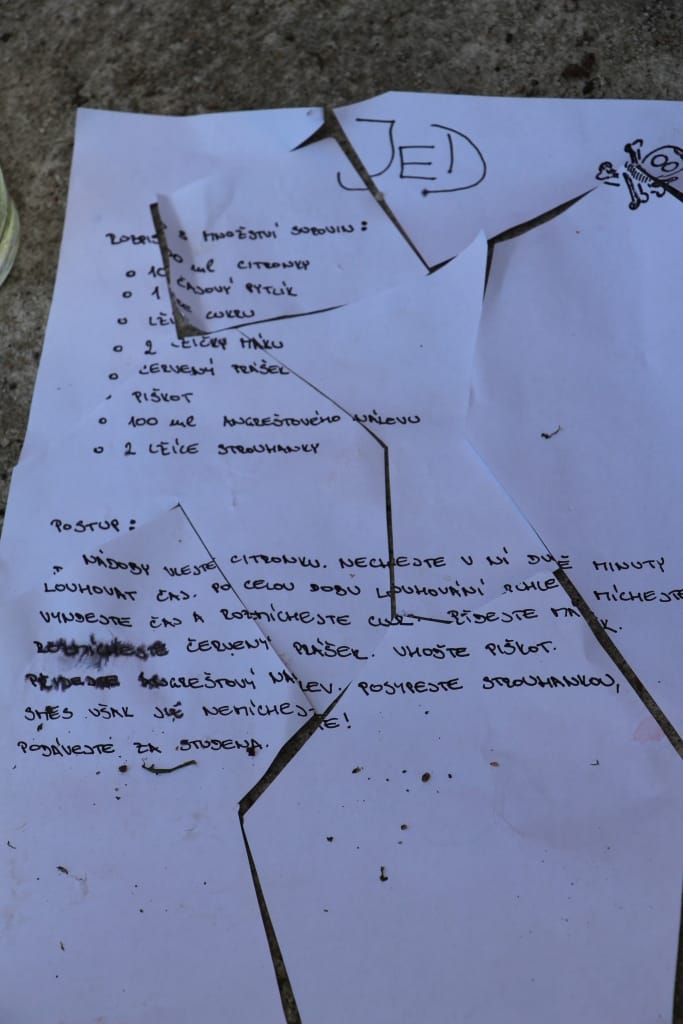 JED
ROZPIS MNOŽSTVÍ SUROVIN:
10 ml CITRONKY
1 ČAJOVÝ PYTLÍK
CUKRU
2 LŽIČKY MÁKU
ČERVENÝ PRÁŠEK
PIŠKOT
100 ml ANGREŠTOVÉHO NÁLEVU
2 LŽÍCE STROUHANKY
POSTUP:
NÁDOBY VLEJTE CITRONKU. NECHEJTE V NÍ DVĚ MINUTY
LOUHOVAT ČAJ. PO CELOU DOBU LOUHOVÁNÍ RYCHLE MÍCHEJTE
VYNDEJTE ČAJ A ROZMÍCHEJTE
ROZMÍCHEJTE ČERVENÝ PRÁŠEK. VHOĎTE PIŠKOT.
PŘIDEJTE ANGREŠTOVÝ NÁLEV. POSYPEJTE STROUHANKOU,
SMĚS VŠAK JIŽ NEMÍCHEJTE!
PODÁVEJTE ZA STUDENA.